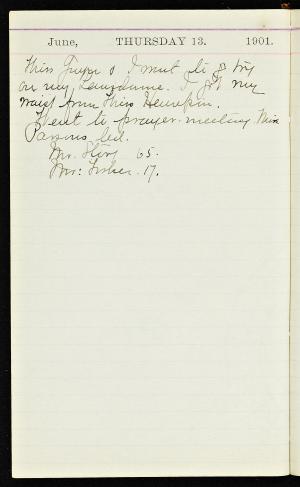 June, THURSDAY 13. 1901.
Miss & I went to try
on my I got my
waist from Miss
Went to prayer-meeting. Miss
Parsons led.
Mr. 65.
Mr. Fisher. 17.